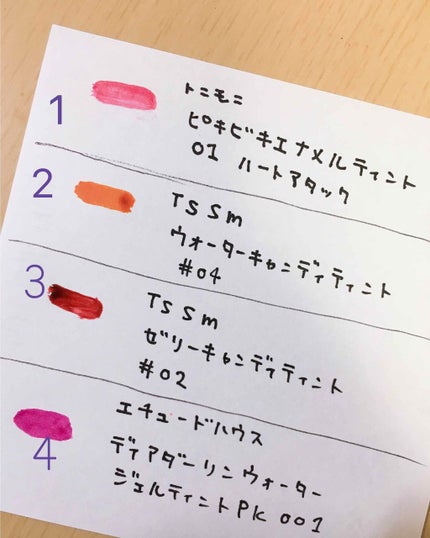 1
トニモニ
ピキビキエナメルティント
01 ハートアタック
2
TSSm
ウォーターキャンディティント
#04
3
TSSm
ゼリーキャンディティント
#02
4
エチュードハウス
ディアダーリンウォーター
ジェルティントPK 001